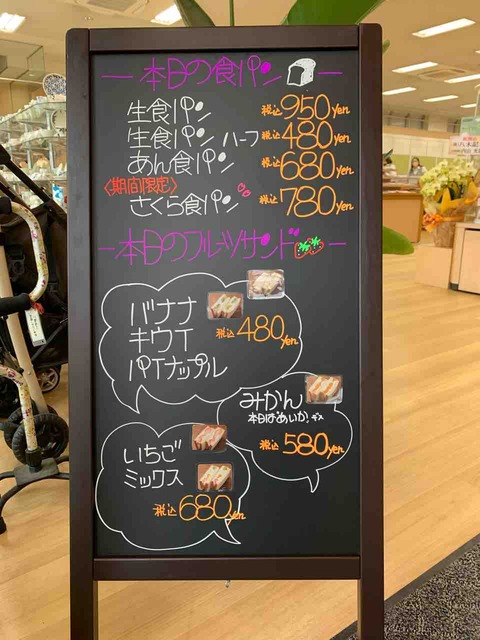 本日の食パン
生食パン 税込950yen
生食パン ハーフ 税込480yen
あん食パン 税込680yen
〈期間限定〉
さくら食パン 税込780yen
本日のフルーツサンド
バナナ
キウイ
パイナップル
税込480yen
みかん
本日はあいか!デス
税込580yen
いちご
ミックス
税込680yen